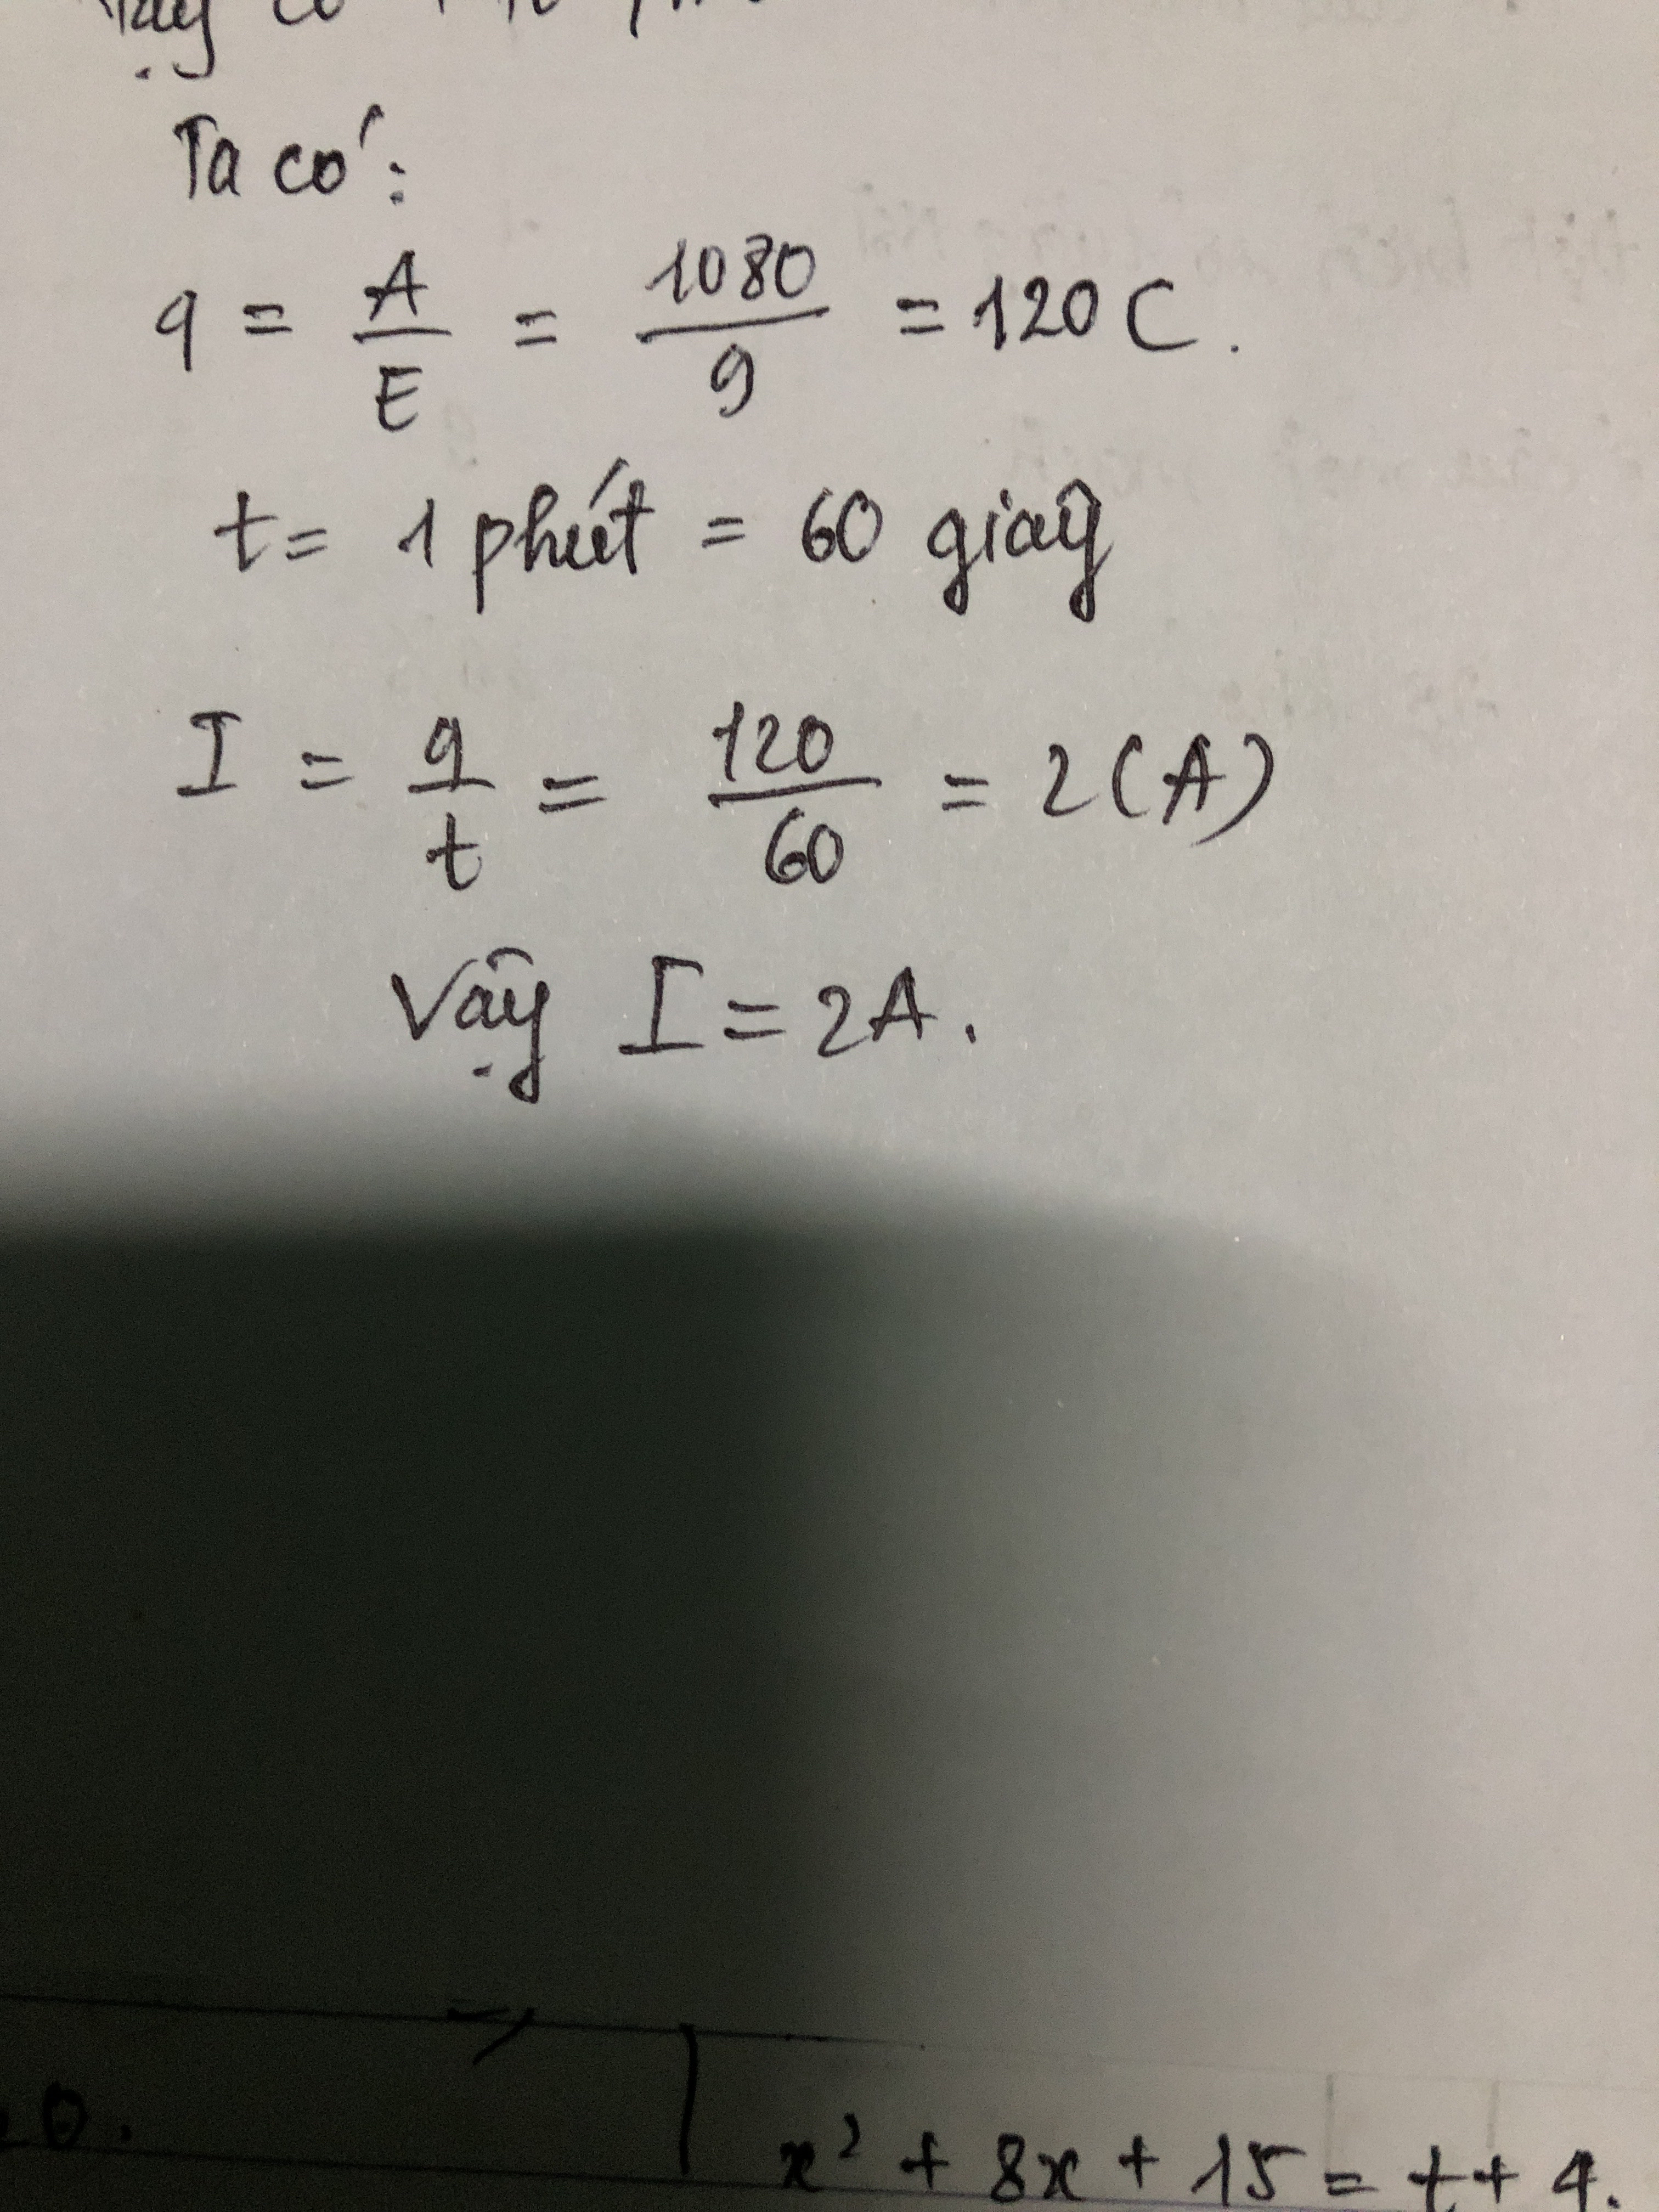 Ta có:
q = A/E = 1080/9 = 120 C.
t = 1 phút = 60 giây
I = q/t = 120/60 = 2 (A)
Vậy I = 2A.
0.
x² + 8x + 15 = t + 4.